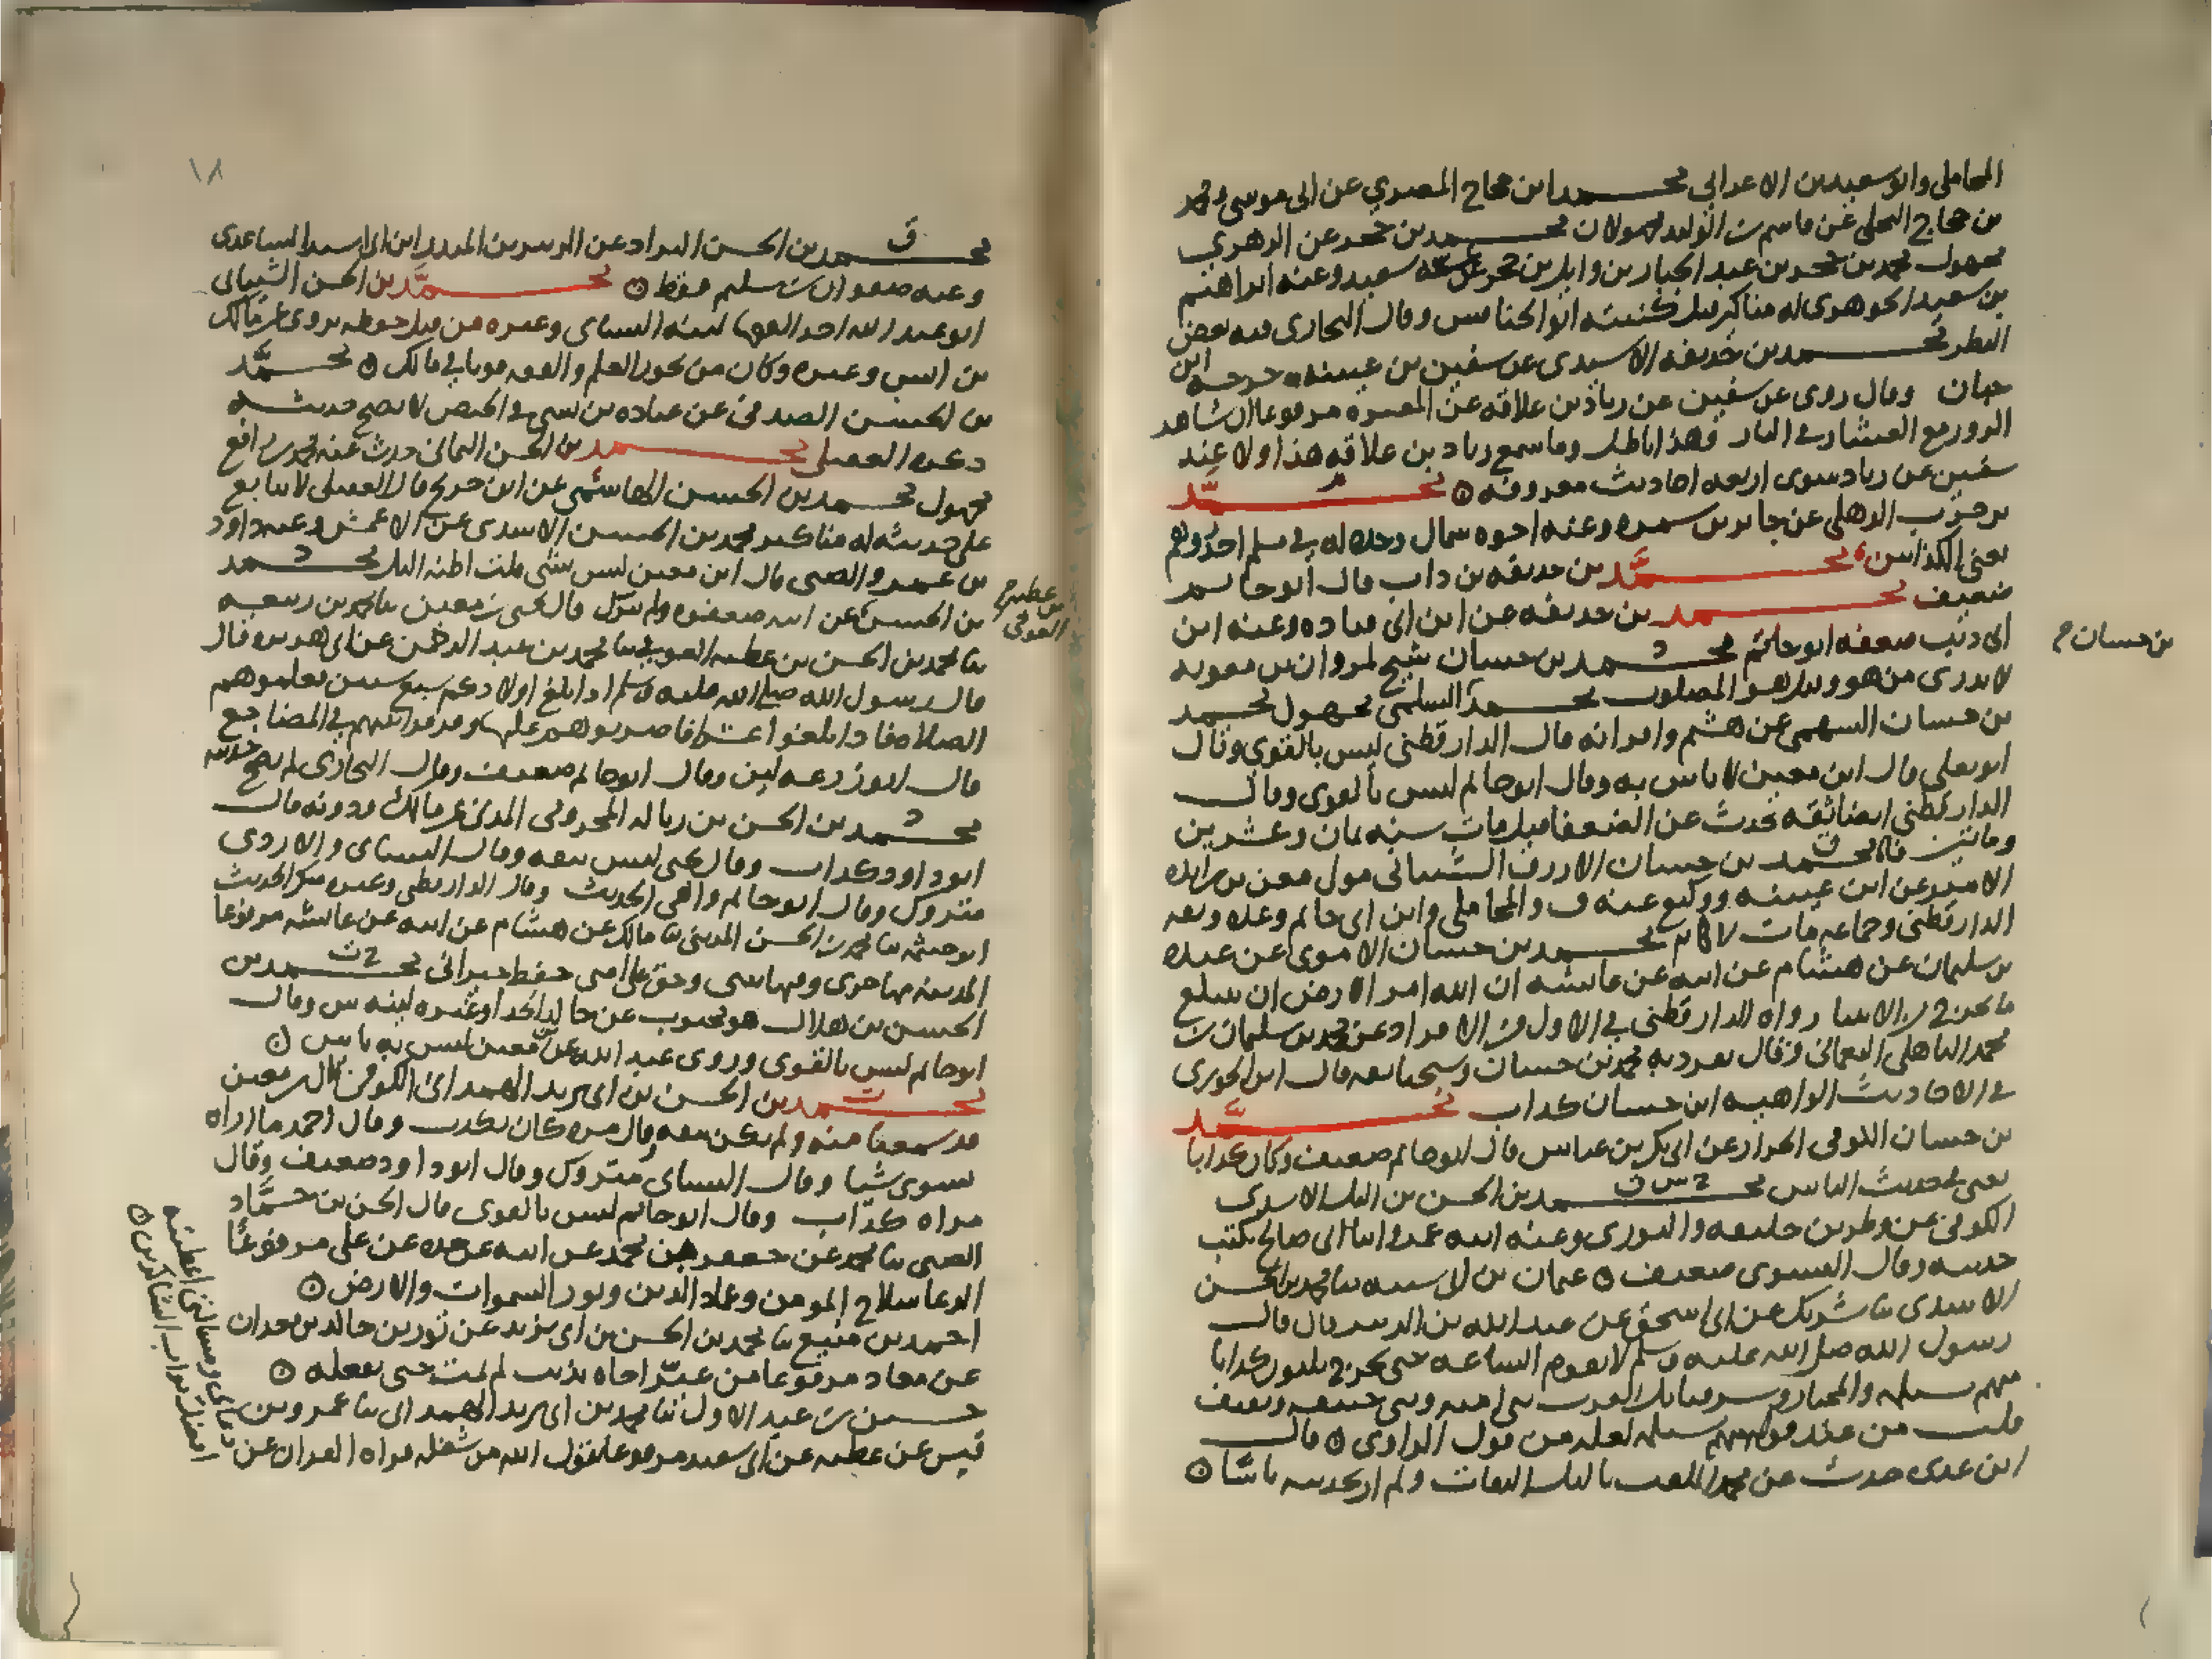 المحاملي وابو سعيد بن الاعرابي محمد ابن حجاج المصري عن ابي موسى ومحمد
بن حجاج الحلى عن قاسم بن الوليد مجهولان محمد بن حجر عن الزهري
مجهول محمد بن حجر بن عبد الجبار بن وايل بن حجر عن عمه سعيد وعنه ابراهيم
بن سعيد الجوهري له مناكير قيل كنيته ابو الخنافس وقال البخاري فيه بعض
النظر محمد بن حذيفه الاسيدي عن سفين بن عيينه جرحه ابن
حبان وقال روى عن سفين عن زياد بن علاقه عن المغيره مرفوعا ان شاهد
الزور مع العشار في النار فهذا باطل وما سمع زياد بن علاقه هذا ولا عند
سفين عن زياد سوى اربعه احاديث معروفه محمد
بن حرب الذهلي عن جابر بن سمره وعنه اخوه سماك وحده له في مسلم احذروهم
يعني الكذابين محمد بن حذيفه بن داب قال ابو حاتم
ضعيف محمد بن حذيفه عن ابن ابي قتاده وعنه ابن
ابي ذئب ضعفه ابو حاتم محمد بن حسان شيخ لمروان بن معويه
بن حسان
لا يدرى من هو وقيل هو المصلوب محمد السلمي مجهول محمد
بن حسان السهمي عن هشيم واقرانه قال الدارقطني ليس بالقوي وقال
ابو يعلى قال ابن معين لا باس به وقال ابو حاتم ليس بالقوي وقال
الدارقطني ايضا ثقه يحدث عن الضعفا قيل مات سنه ثمان وعشرين
وماتين محمد بن حسان الازرق الشيباني مولى معن بن زايده
الامير عن ابن عيينه ووكيع عنه ق والمحاملي وابن ابي حاتم وعده وثقه
الدارقطني وجماعه مات محمد بن حسان الاموي عن عبده
بن سليمان عن هشام عن ابيه عن عايشه ان الله امر الارض ان تبلع
ما يخرج من الانبيا رواه الدارقطني في الاول من الافراد عن محمد بن سليمان بن
محمد الباهلي النعماني وقال تفرد به محمد بن حسان وشيخنا ثقه قال ابن الجوزي
في الاحاديث الواهيه ابن حسان كذاب محمد
بن حسان الكوفي الخزاز عن ابي بكر بن عياش قال ابو حاتم ضعيف وكان كذابا
يعني بحديث الناس محمد بن الحسن بن التل الاسدي
الكوفي عن فطر بن خليفه والثوري وعنه ابنه عمر وابنا ابي صالح يكتب
حديثه وقال الفسوي ضعيف عثمان بن ابي شيبه ثنا محمد بن الحسن
الاسدي ثنا شريك عن ابي اسحق عن عبد الله بن الزبير قال قال
رسول الله صلى الله عليه وسلم لا تقوم الساعه حتى يخرج ثلثون كذابا
منهم مسيلمه والمختار وشر قبايل العرب بني اميه وبني حنيفه وثقيف
قلت من عند قوله منهم مسيلمه لعله من قول الراوي قال
ابن عدي حدث عن محمد الملقب بالتل الثقات ولم ار بحديثه باسا
١٨
محمد بن الحسن البراد عن الزبير بن المنذر ابن ابي اسيد الساعدي
وعنه صفوان بن سليم فقط محمد بن الحسن الشيباني
ابو عبد الله احد الفقها لينه النسائي وغيره من قبل حفظه يروي عن مالك
بن انس وغيره وكان من بحور العلم والفقه قويا في مالك محمد
بن الحسن الصدفي عن عباده بن نسي في الحيض لا يصح حديثه
ذكره العقيلي محمد بن الحسن اليماني حدث عنه محمد بن رافع
مجهول محمد بن الحسن الهاشمي عن ابن جريج قال العقيلي لا يتابع
على حديثه له مناكير محمد بن الحسن الاسدي عن الاعمش وعنه داود
بن عمرو الضبي قال ابن معين ليس بشي قلت اظنه التل محمد
بن الحسن عن ابيه ضعفوه ولم يترك قال يحيى بن معين ثنا محمد بن ربيعه
بن عطيه العوفي
ثنا محمد بن الحسن بن عطيه العوفي ثنا محمد بن عبد الرحمن عن ابي هريره قال
قال رسول الله صلى الله عليه وسلم اذا بلغ اولادكم سبع سنين فعلموهم
الصلاه فاذا بلغوا عشرا فاضربوهم عليها وفرقوا بينهم في المضاجع
قال ابو زرعه لين وقال ابو حاتم ضعيف وقال البخاري لم يصح حديثه
محمد بن الحسن بن زباله المخزومي المدني عن مالك ودونه قال
ابو داود كذاب وقال يحيى ليس بثقه وقال النسائي والازدي
متروك وقال ابو حاتم واهي الحديث وقال الدارقطني وغيره منكر الحديث
ابو خيثمه ثنا محمد بن الحسن المديني ثنا مالك عن هشام عن ابيه عن عايشه مرفوعا
المدينه مهاجري وفيها بيتي وحق على امتي حفظ جيراني محمد بن
الحسن بن هلال هو محبوب عن خالد الحذا وغيره لينه س وقال
ابو حاتم ليس بالقوي وروى عبد الله عن معين ليس به باس
محمد بن الحسن بن ابي يزيد الهمداني الكوفي قال بن معين
قد سمعنا منه ولم يكن بثقه وقال مره كان يكذب وقال احمد ما اراه
يسوى شيا وقال النسائي متروك وقال ابو داود ضعيف وقال
مراه كذاب وقال ابو حاتم ليس بالقوي قال الحسن بن حماد
الضبي ثنا محمد عن جعفر بن محمد عن ابيه عن جده عن علي مرفوعا
الدعا سلاح المومن وعماد الدين ونور السموات والارض
احمد بن منيع ثنا محمد بن الحسن بن ابي يزيد عن ثور بن خالد بن معدان
عن معاذ مرفوعا من عير اخاه بذنب لم يمت حتى يفعله
حسين بن عبد الاول ثنا محمد بن ابي يزيد الهمداني ثنا عمرو بن
قيس عن عطيه عن ابي سعيد مرفوعا يقول الله من شغله قراه القران عن
دعاي ومسالتي اعطيته
افضل ثواب الشاكرين